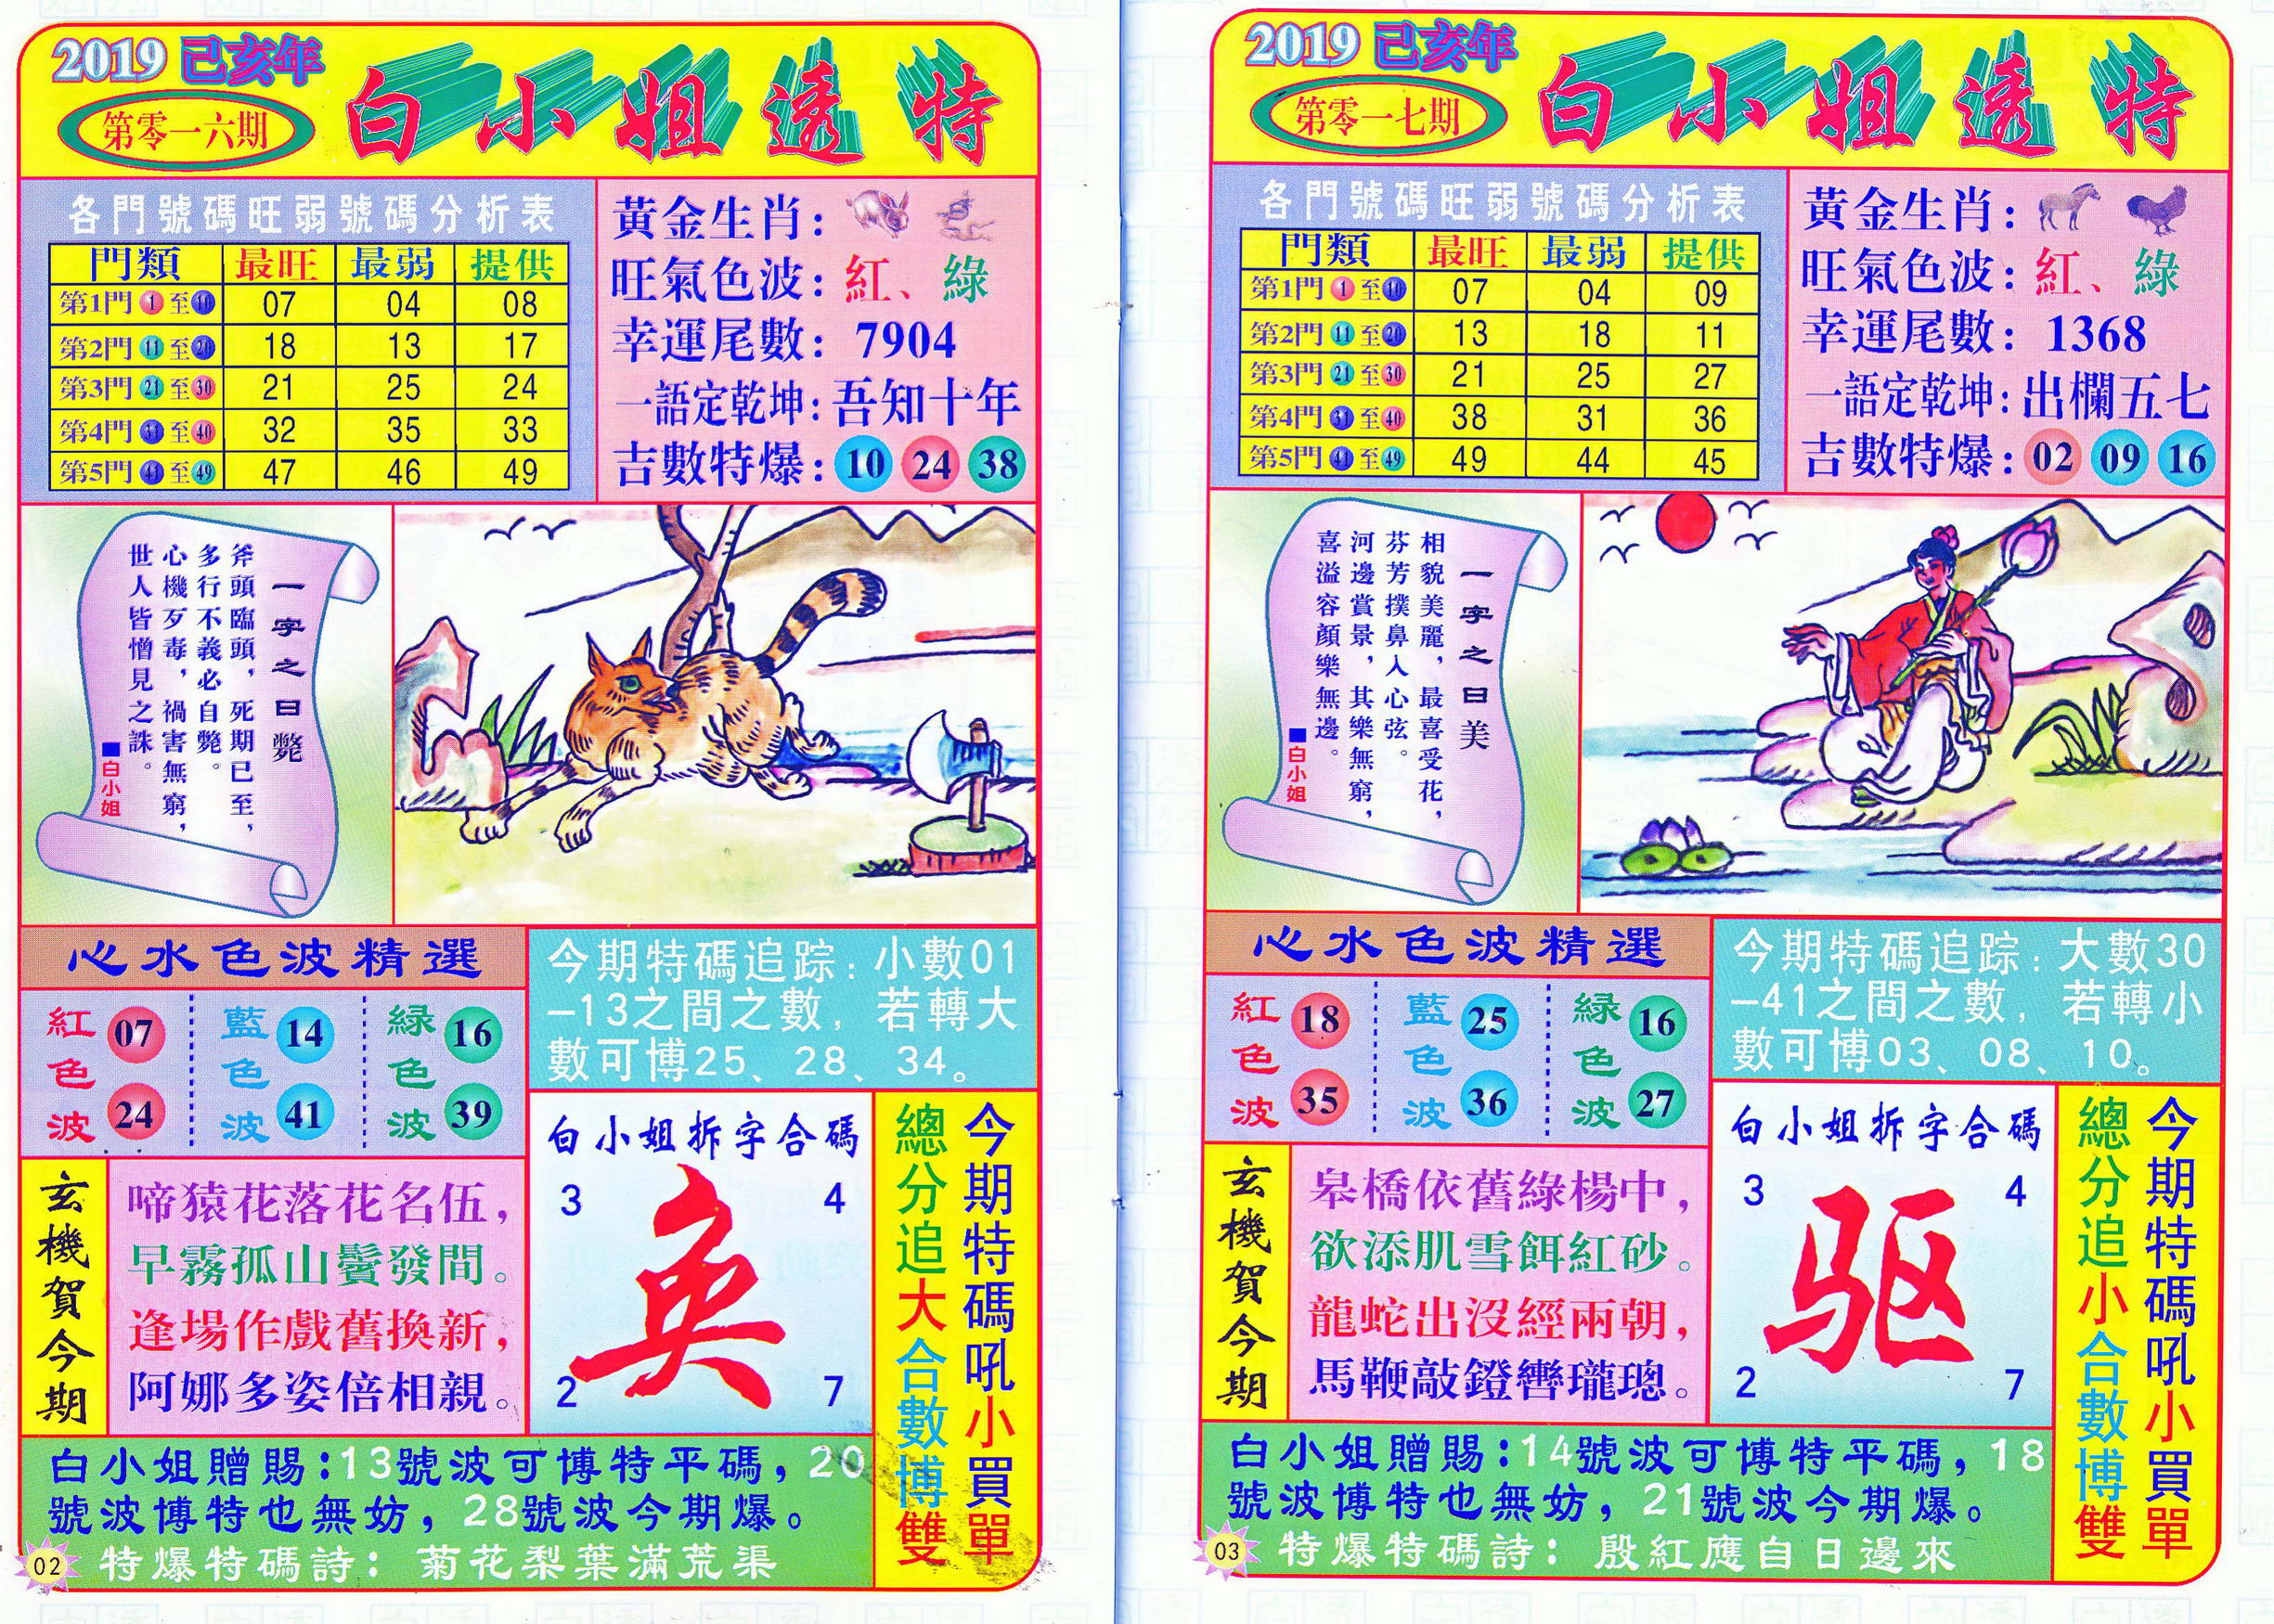 2019 己亥年
第零一六期
白小姐透特
各門號碼旺弱號碼分析表
門類 最旺 最弱 提供
第1門 1 至 10 07 04 08
第2門 11 至 20 18 13 17
第3門 21 至 30 21 25 24
第4門 31 至 40 32 35 33
第5門 41 至 49 47 46 49
黃金生肖：
旺氣色波：紅、綠
幸運尾數：7904
一語定乾坤：吾知十年
吉數特爆：10 24 38
一字之曰斃
斧頭臨頭，死期已至，
多行不義必自斃。
心機歹毒，禍害無窮，
世人皆憎見之誅。
■白小姐
心水色波精選
紅色波 07 24
藍色波 14 41
緑色波 16 39
今期特碼追踪：小數01
-13之間之數，若轉大
數可博25、28、34。
玄機賀今期
啼猿花落花名伍，
早霧孤山鬢發間。
逢場作戲舊換新，
阿娜多姿倍相親。
白小姐拆字合碼
3 4
奂
2 7
今期特碼吼小買單
總分追大合數博雙
白小姐贈賜：13號波可博特平碼，20
號波博特也無妨，28號波今期爆。
02 特爆特碼詩：菊花梨葉滿荒渠
2019 己亥年
第零一七期
白小姐透特
各門號碼旺弱號碼分析表
門類 最旺 最弱 提供
第1門 1 至 10 07 04 09
第2門 11 至 20 13 18 11
第3門 21 至 30 21 25 27
第4門 31 至 40 38 31 36
第5門 41 至 49 49 44 45
黃金生肖：
旺氣色波：紅、綠
幸運尾數：1368
一語定乾坤：出欄五七
吉數特爆：02 09 16
一字之曰美
相貌美麗，最喜受花，
芬芳撲鼻入心弦。
河邊賞景，其樂無窮，
喜溢容顏樂無邊。
■白小姐
心水色波精選
紅色波 18 35
藍色波 25 36
緑色波 16 27
今期特碼追踪：大數30
-41之間之數，若轉小
數可博03、08、10。
玄機賀今期
皋橋依舊綠楊中，
欲添肌雪餌紅砂。
龍蛇出沒經兩朝，
馬鞭敲鐙轡瓏璁。
白小姐拆字合碼
3 4
驱
2 7
今期特碼吼小買單
總分追小合數博雙
白小姐贈賜：14號波可博特平碼，18
號波博特也無妨，21號波今期爆。
03 特爆特碼詩：殷紅應自日邊來